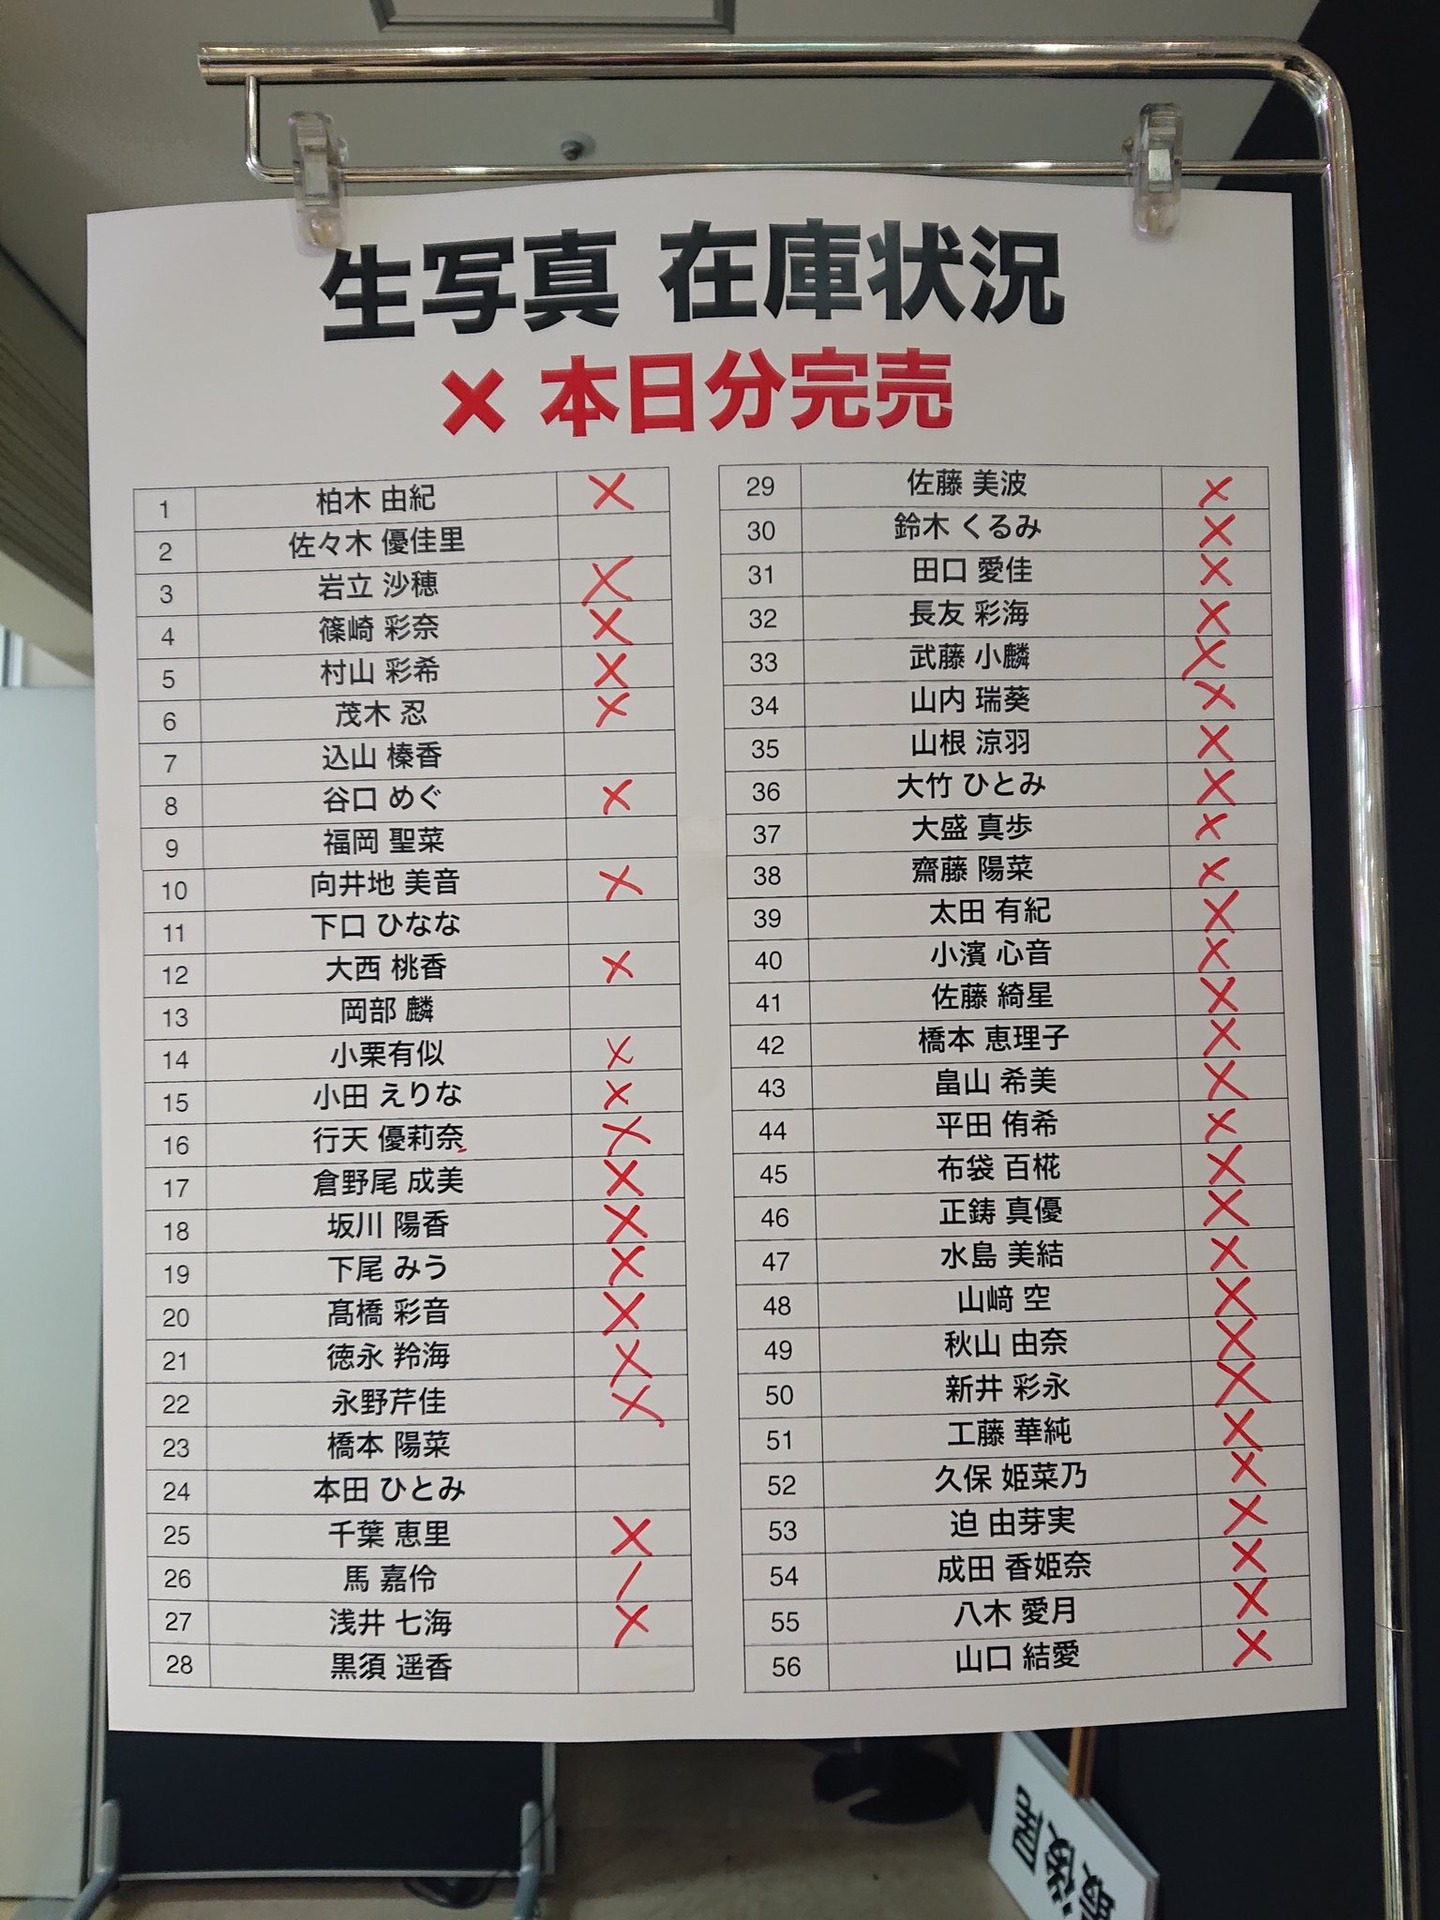 生写真 在庫状況
× 本日分完売
1 柏木 由紀 ×
2 佐々木 優佳里
3 岩立 沙穂 ×
4 篠崎 彩奈 ×
5 村山 彩希 ×
6 茂木 忍 ×
7 込山 榛香
8 谷口 めぐ ×
9 福岡 聖菜
10 向井地 美音 ×
11 下口 ひなな
12 大西 桃香 ×
13 岡部 麟
14 小栗有以 ×
15 小田 えりな ×
16 行天 優莉奈 ×
17 倉野尾 成美 ×
18 坂川 陽香 ×
19 下尾 みう ×
20 髙橋 彩音 ×
21 徳永 羚海 ×
22 永野芹佳 ×
23 橋本 陽菜
24 本田 ひとみ
25 千葉 恵里 ×
26 馬 嘉伶 /
27 浅井 七海 ×
28 黒須 遥香
29 佐藤 美波 ×
30 鈴木 くるみ ×
31 田口 愛佳 ×
32 長友 彩海 ×
33 武藤 小麟 ×
34 山内 瑞葵 ×
35 山根 涼羽 ×
36 大竹 ひとみ ×
37 大盛 真歩 ×
38 齋藤 陽菜 ×
39 太田 有紀 ×
40 小濱 心音 ×
41 佐藤 綺星 ×
42 橋本 恵理子 ×
43 畠山 希美 ×
44 平田 侑希 ×
45 布袋 百椛 ×
46 正鋳 真優 ×
47 水島 美結 ×
48 山﨑 空 ×
49 秋山 由奈 ×
50 新井 彩永 ×
51 工藤 華純 ×
52 久保 姫菜乃 ×
53 迫 由芽実 ×
54 成田 香姫奈 ×
55 八木 愛月 ×
56 山口 結愛 ×
最後尾